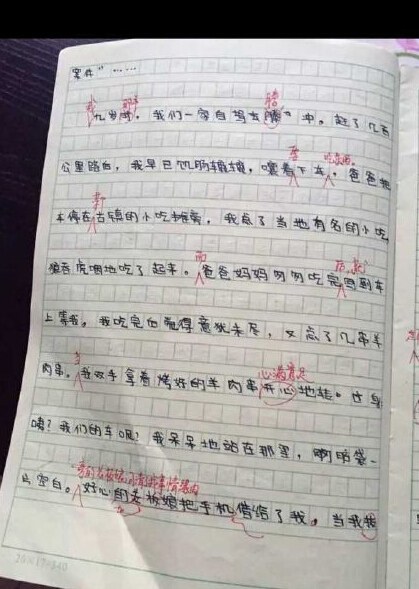 案件"……
我 那年
九岁时。我们一家自驾去 腾 中。赶了几百
要 吃东西
公里路后，我早已饥肠辘辘，嚷着下车。爸爸把
车停在古镇的小吃摊旁，我点了当地有名的小吃
而 后，就
狼吞虎咽地吃了起来。爸爸妈妈匆匆吃完回到车
上等我。我吃完后觉得意犹未尽，又点了几串羊
心满意足
肉串。我双手拿着烤好的羊肉串开心地转过身
咦？我们的车呢？我呆呆地站在那里，脑袋一
片空白。好心的老板娘把手机借给了我。当我